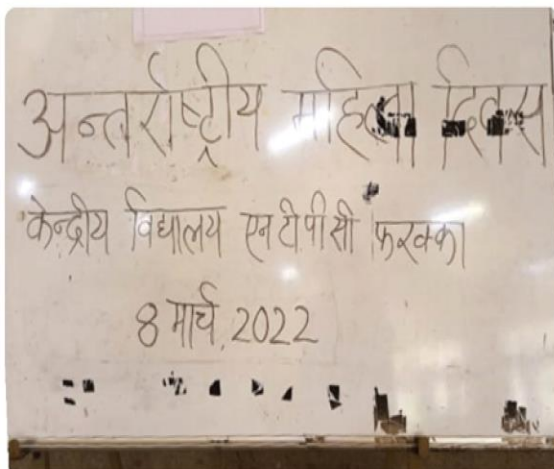 अन्तर्राष्ट्रीय महिला दिवस
केन्द्रीय विद्यालय एनटीपीसी फरक्का
8 मार्च, 2022